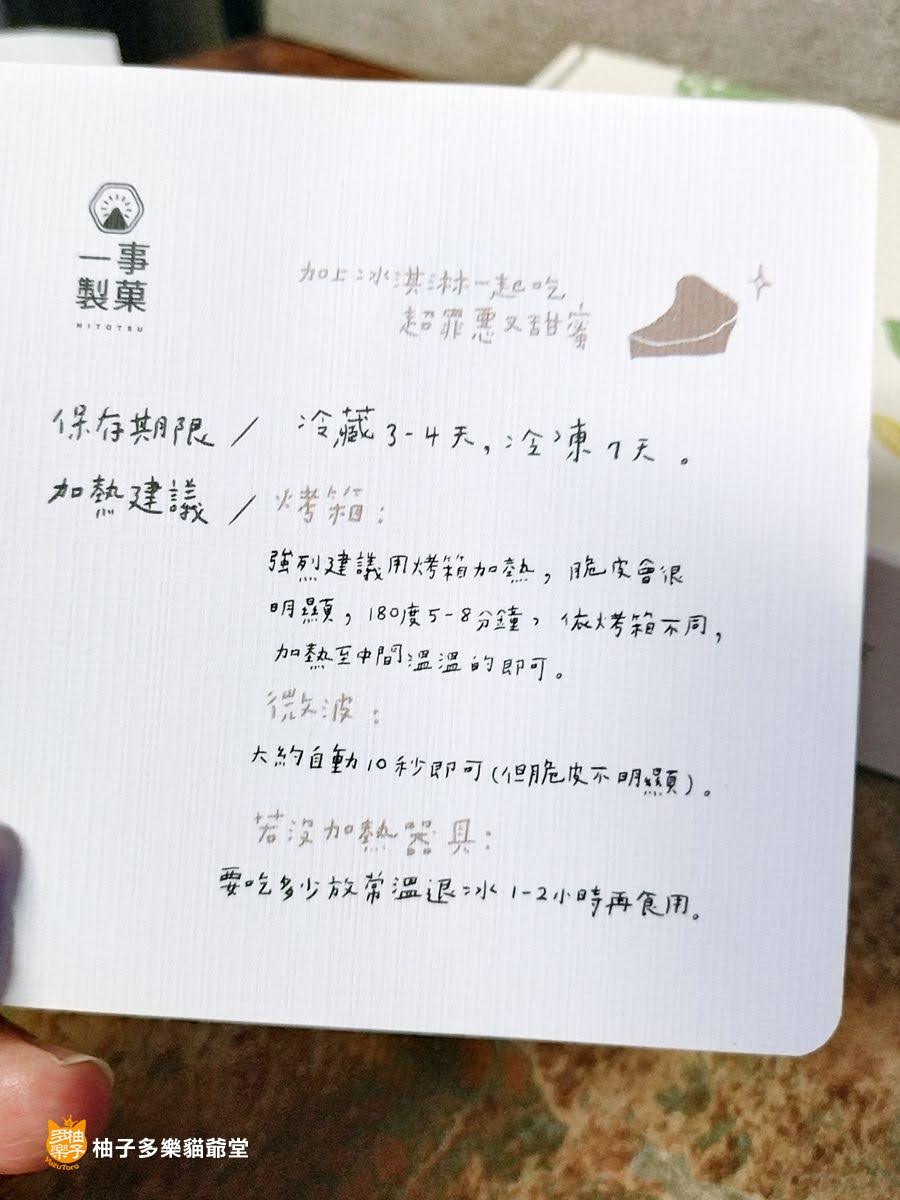 一事
製菓
HITOTSU
加上冰淇淋一起吃
超罪惡又甜蜜
保存期限 / 冷藏3-4天,冷凍7天。
加熱建議 / 烤箱:
強烈建議用烤箱加熱,脆皮會很
明顯,180度5-8分鐘,依烤箱不同,
加熱至中間溫溫的即可。
微波:
大約自動10秒即可(但脆皮不明顯)。
若沒加熱器具:
要吃多少放常溫退冰1-2小時再食用。
多柚
樂子
YuzuToro
柚子多樂貓爺堂